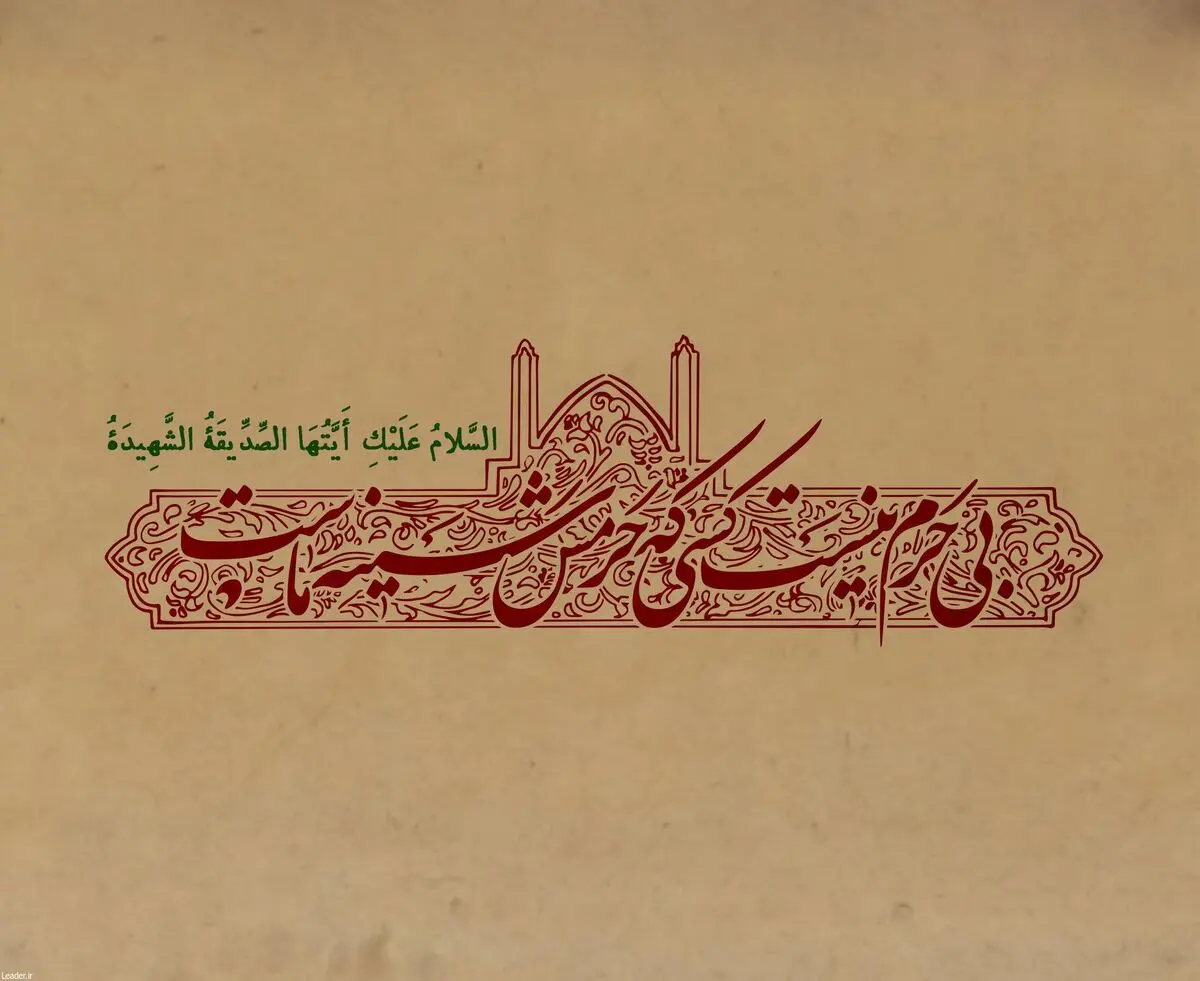 السَّلامُ عَلَیْكِ أَیَّتُهَا الصِّدِّیقَةُ الشَّهِیدَةُ
بی حَرَم نیست کسی که حَرمش سینه ماست
Leader.ir